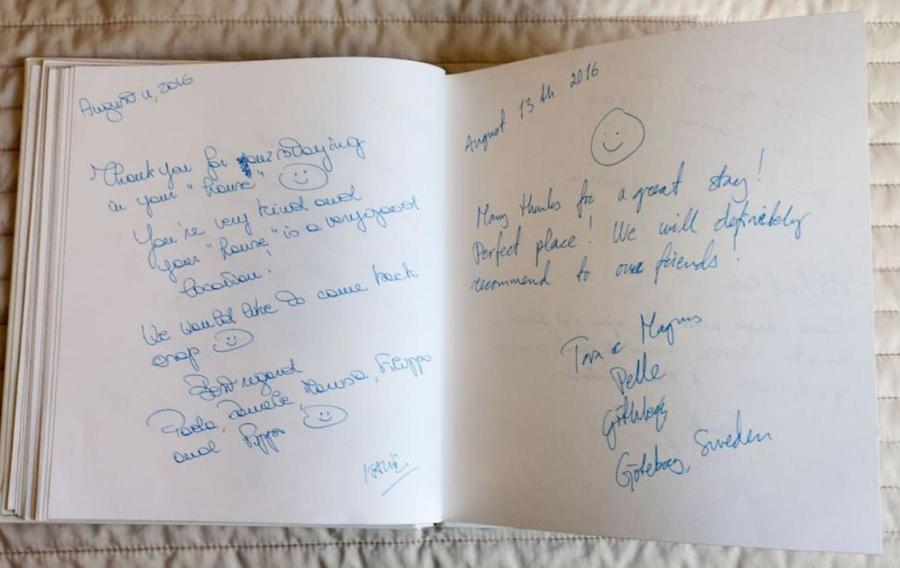 August 11, 2016
Thank you for staying
in your "house"
You're very kind and
your "house" is a very good
location!
We would like to come back
Best regard
Paola, Daniele, Filippo
and Pippo
August 13th 2016
Many thanks for a great stay!
Perfect place! We will definietely
recommend to our friends!
& Magnus
Pelle
Göteborg, Sweden